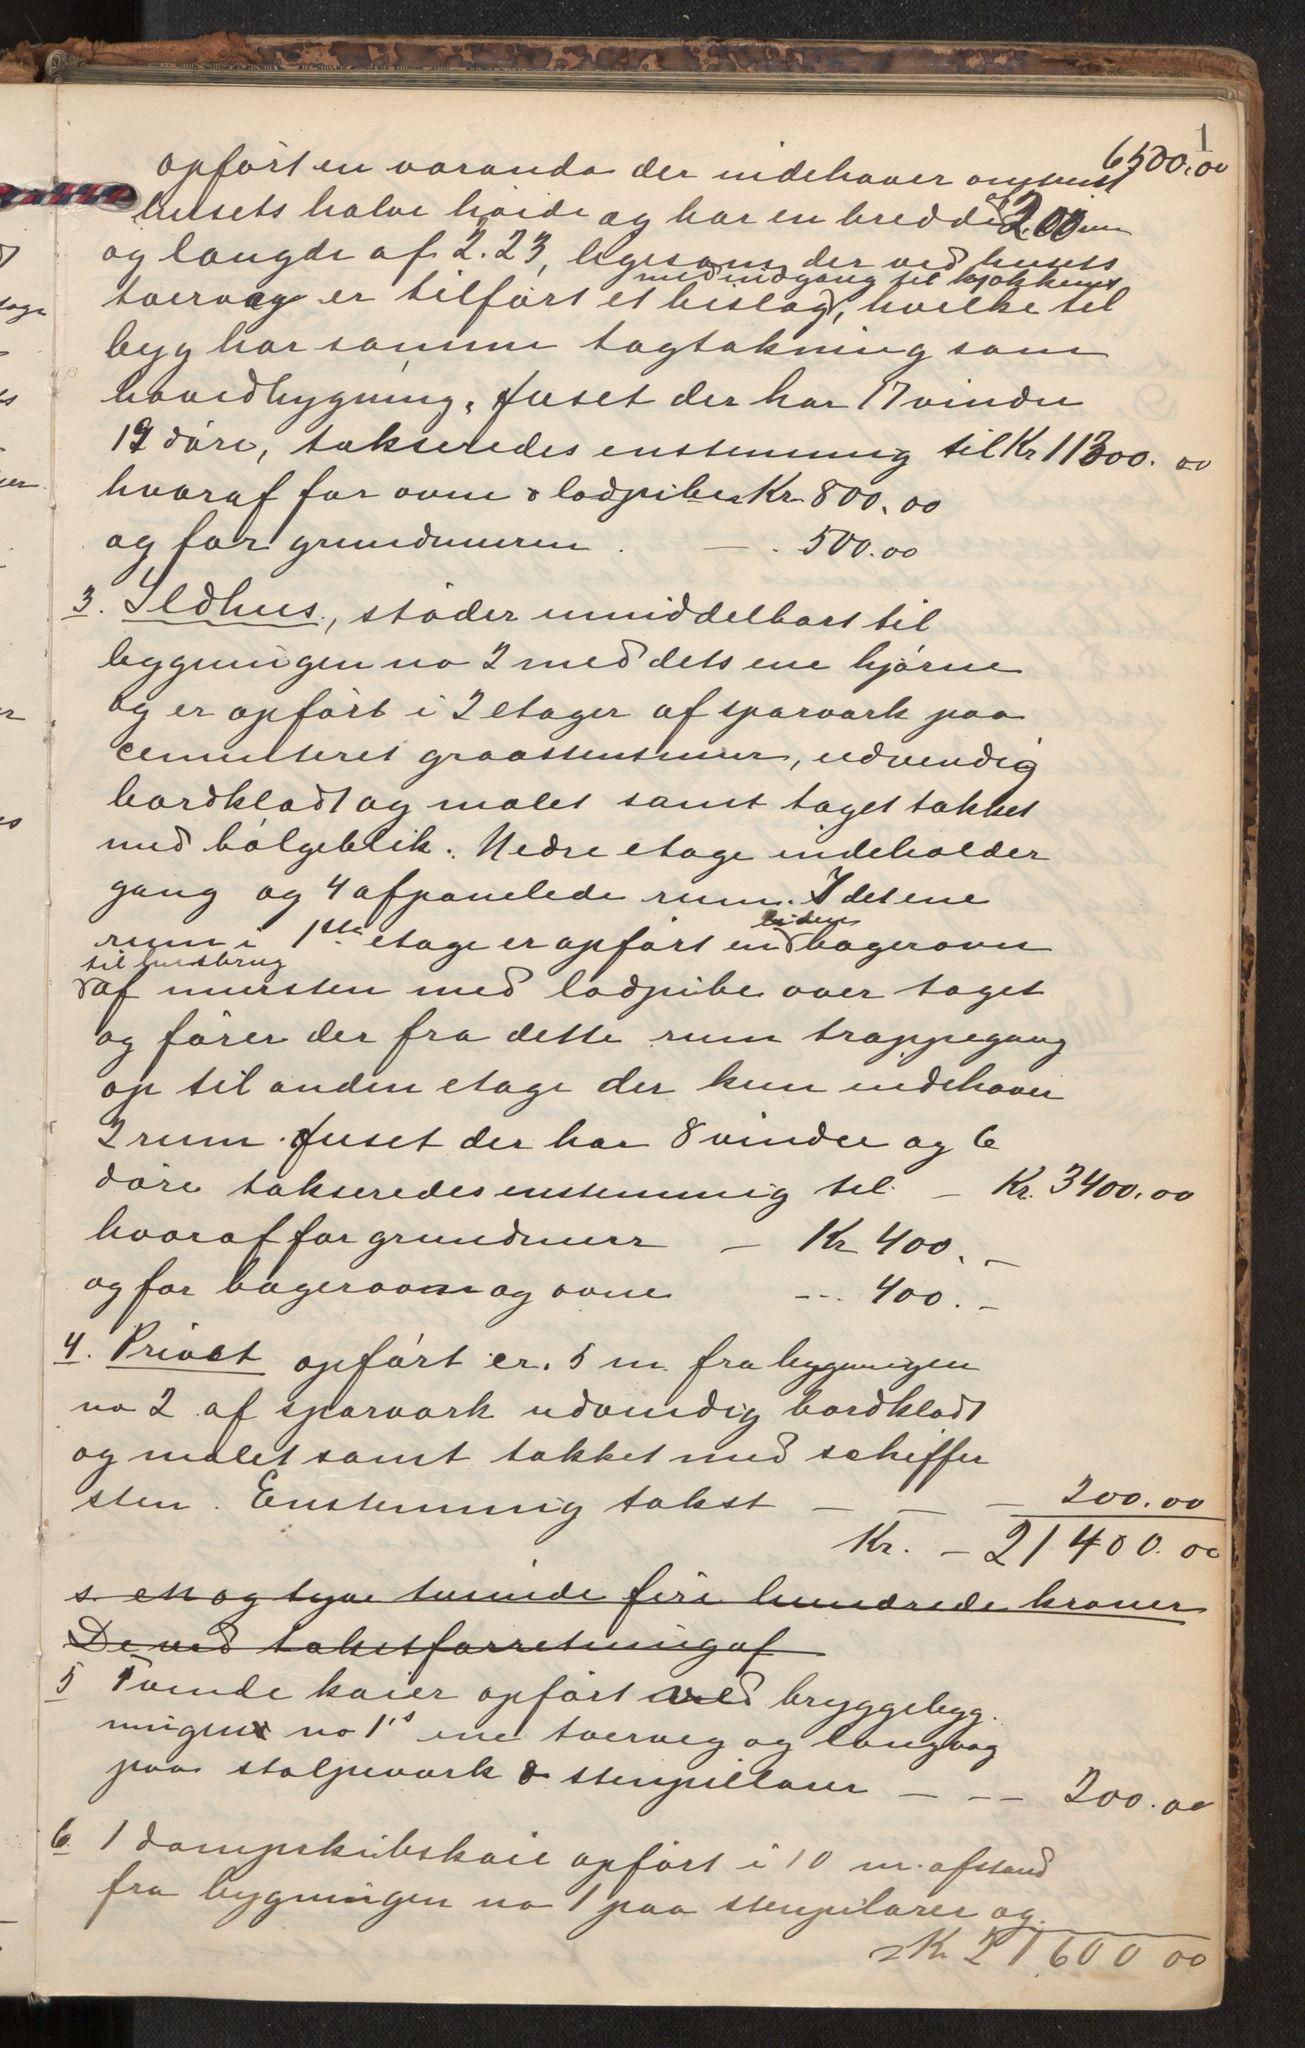 1
opført en varanda der indehaver omtrent 6500.00
husets halve høide og har en bredde af 2.00 m
og længde af 2.23, ligesom der ved husets
med indgang til kjøkkenet
tvervæg er tilført et bislag, hvilke til
byg har samme tagtækning som
hovedbygning. Huset der har 17 vindu
19 døre, takseredes enstemmig til Kr 11300.00
hvoraf for ovne & ladpiber Kr. 800.00
og for grundmuren . — . 500.00
3. Ildhus, støder umiddelbart til
bygningen no 2 med dets ene hjørne
og er opført i 2 etager af sparværk paa
cementeret graastensmur, udvendig
bordklædt og malet samt taget tækket
med bølgeblik. Nedre etage indeholder
gang og 4 afpanelede rum. I det ene
liden
rum i 1ste etage er opført en bagerovn
til husbrug
af mursten med ladpibe over taget
og fører der fra dette rum trappegang
op til anden etage der kun indehaver
2 rum. Huset der har 8 vinduer og 6
døre takseredes enstemmig til — Kr. 3400.00
hvoraf for grundmur — Kr 400. —
og for bagerovn og ovne --- 400. —
4. Privet opført er. 5 m. fra bygningen
no 2 af sparværk udvendig bordklædt
og malet samt tækket med schiffer
sten. Enstemmig takst — — — 200.00
Kr. — 21400.00
s. en og tyve tusinde fire hundrede kroner
De ved takstforretning af
5 Tvende kaier opført ved bryggebyg.
ningen no 1's ene tverveg og langvæg
paa stolpeværk & stenpillarer — — — 200.00
6 1 dampskibskaie opført i 10 m. afstand
fra bygningen no 1 paa stenpilarer og
Kr. 21600 00